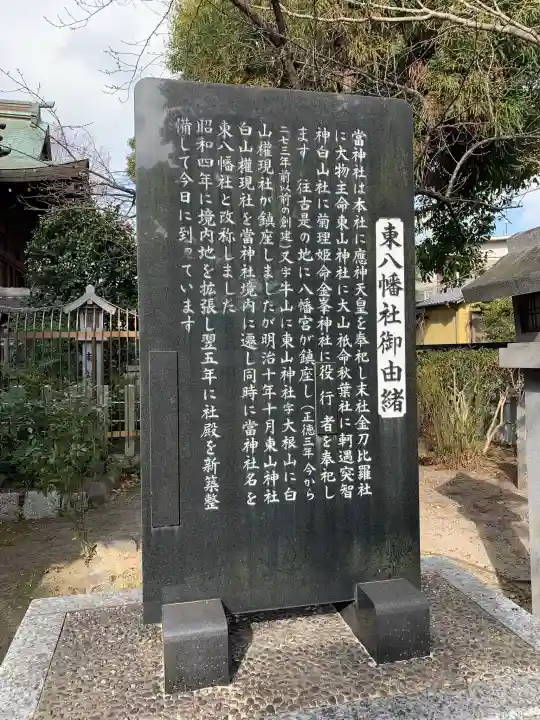 東八幡社御由緒
當神社は本社に應神天皇を奉祀し末社金刀比羅社
に大物主命東山神社に大山祇命秋葉社に軻遇突智
神白山社に菊理姫命金峯神社に役行者を奉祀し
ます 往古是の地に八幡宮が鎮座し(正徳三年今から
二七三年前以前の創建)又字牛山に東山神社字大根山に白
山權現社が鎮座しましたが明治十年十月東山神社
白山權現社を當神社境内に遷し同時に當神社名を
東八幡社と改称しました
昭和四年に境内地を拡張し翌五年に社殿を新築整
備して今日に到っています